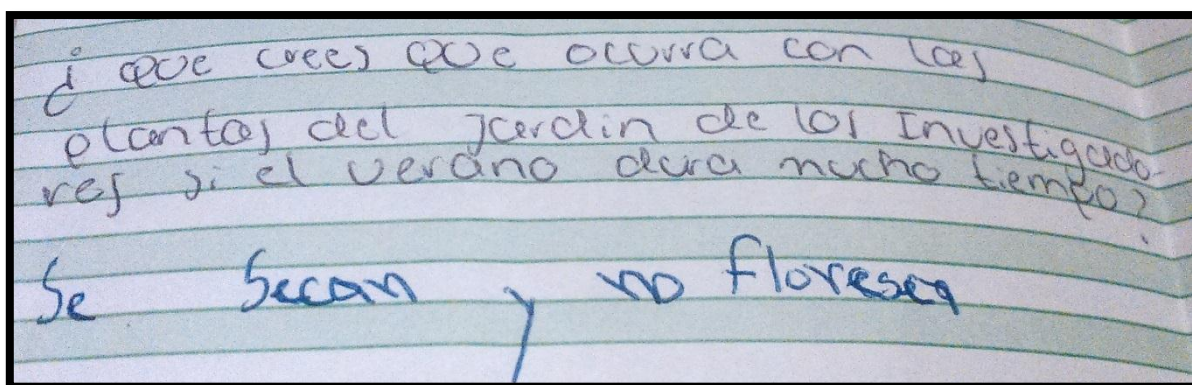 ¿ que crees que ocurra con las
plantas del jardin de los Investigado-
res si el verano dura mucho tiempo?
Se Secan y no floresea